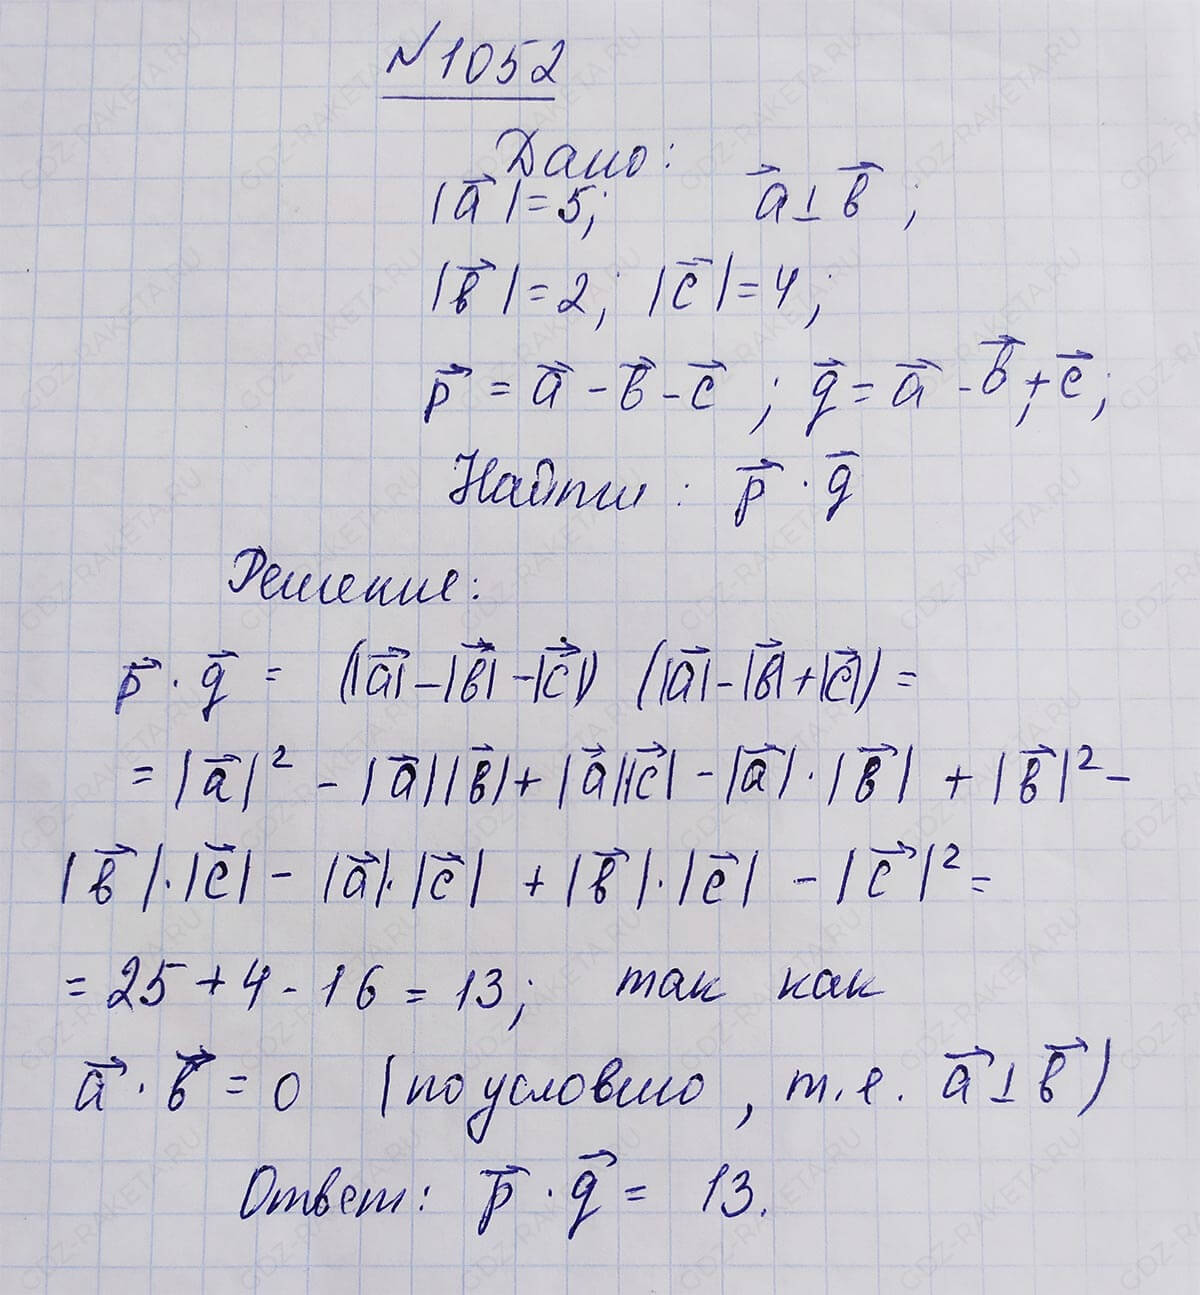 №1052
Дано:
|a⃗|=5; a⃗⊥b⃗;
|b⃗|=2; |c⃗|=4;
p⃗ = a⃗ - b⃗ - c⃗ ; q⃗ = a⃗ - b⃗ + c⃗;
Найти: p⃗ · q⃗
Решение:
p⃗ · q⃗ = (|a⃗| - |b⃗| - |c⃗|) (|a⃗| - |b⃗| + |c⃗|) =
= |a⃗|² - |a⃗||b⃗| + |a⃗||c⃗| - |a⃗|·|b⃗| + |b⃗|² -
|b⃗|·|c⃗| - |a⃗|·|c⃗| + |b⃗|·|c⃗| - |c⃗|² =
= 25 + 4 - 16 = 13; так как
a⃗ · b⃗ = 0 (по условию, т.е. a⃗⊥b⃗)
Ответ: p⃗ · q⃗ = 13.
GDZ-RAKETA.RU